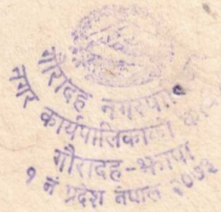 गौरादह नगरपा
नगर कार्यपालिकाको का
गौरादह-झापा
१ नं प्रदेश नेपाल २०७३